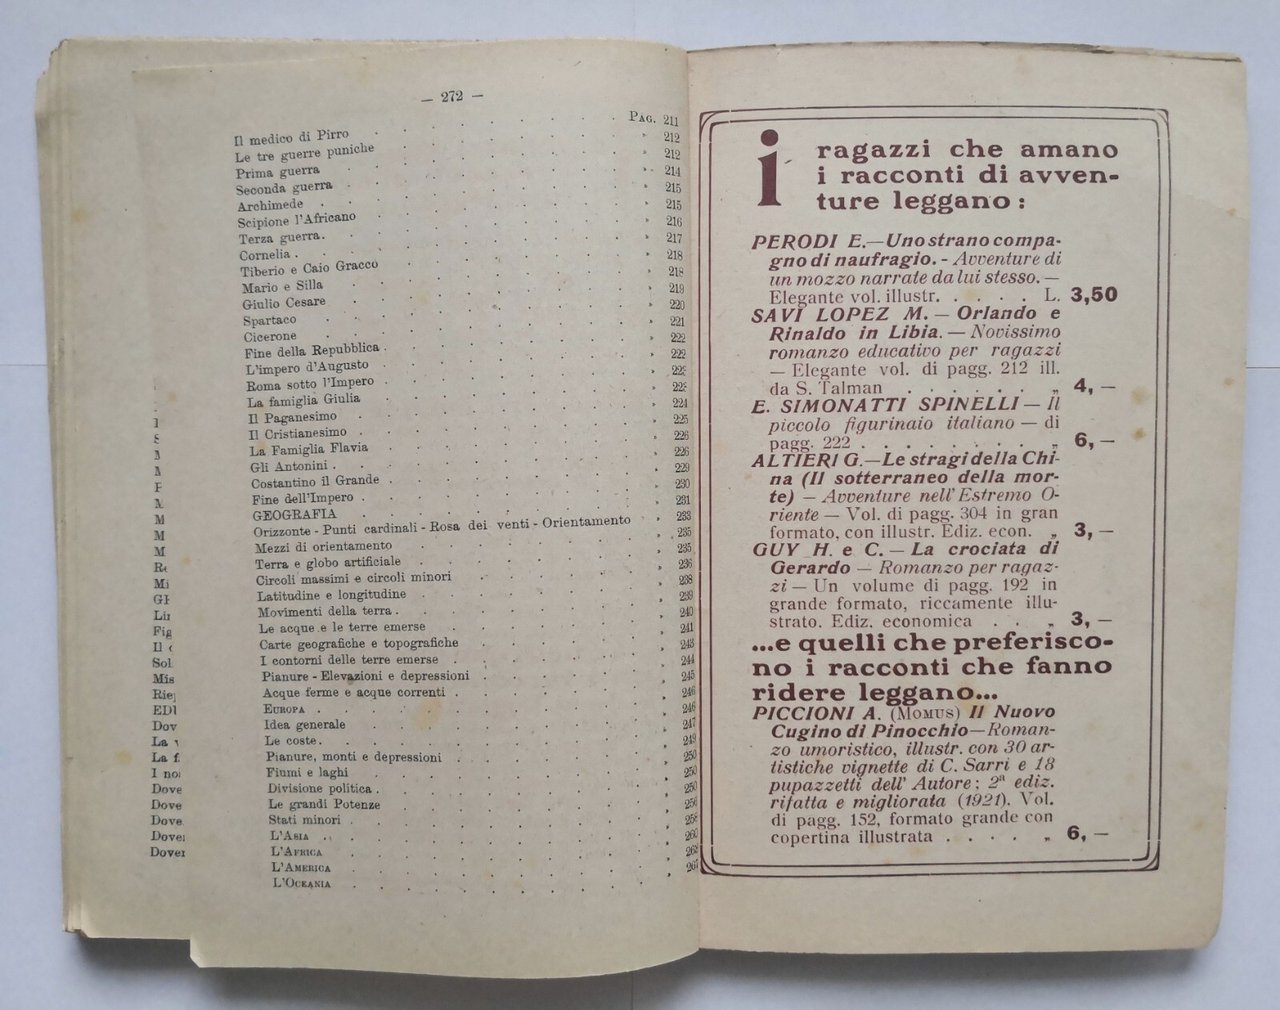 — 272 —
Pag. 211
Il medico di Pirro » 212
Le tre guerre puniche » 212
Prima guerra » 214
Seconda guerra » 215
Archimede » 215
Scipione l'Africano » 216
Terza guerra » 217
Cornelia » 218
Tiberio e Caio Gracco » 218
Mario e Silla » 219
Giulio Cesare » 220
Spartaco » 221
Cicerone » 222
Fine della Repubblica
L'impero d'Augusto
Roma sotto l'Impero
La famiglia Giulia » 224
Il Paganesimo » 225
Il Cristianesimo » 226
La Famiglia Flavia » 226
Gli Antonini » 229
Costantino il Grande » 230
Fine dell'Impero » 231
GEOGRAFIA » 233
Orizzonte - Punti cardinali - Rosa dei venti - Orientamento » 235
Mezzi di orientamento » 235
Terra e globo artificiale » 236
Circoli massimi e circoli minori » 238
Latitudine e longitudine » 239
Movimenti della terra » 240
Le acque e le terre emerse » 241
Carte geografiche e topografiche » 243
I contorni delle terre emerse » 244
Pianure - Elevazioni e depressioni » 245
Acque ferme e acque correnti » 246
Europa » 246
Idea generale » 247
Le coste » 249
Pianure, monti e depressioni » 250
Fiumi e laghi » 250
Divisione politica » 250
Le grandi Potenze » 256
Stati minori » 258
L'Asia » 260
L'Africa
L'America » 267
L'Oceania
Dove
Dove
Dove
i ragazzi che amano
i racconti di avven-
ture leggano:
PERODI E.—Uno strano compa-
gno di naufragio. - Avventure di
un mozzo narrate da lui stesso. —
Elegante vol. illustr. . . . . L. 3,50
SAVI LOPEZ M. — Orlando e
Rinaldo in Libia. — Novissimo
romanzo educativo per ragazzi
— Elegante vol. di pagg. 212 ill.
da S. Talman . . . . . . „ 4,—
E. SIMONATTI SPINELLI — Il
piccolo figurinaio italiano — di
pagg. 222 . . . . . . . . . „ 6,—
ALTIERI G.—Le stragi della Chi-
na (Il sotterraneo della mor-
te) — Avventure nell'Estremo O-
riente — Vol. di pagg. 304 in gran
formato, con illustr. Ediz. econ. „ 3,—
GUY H. e C. — La crociata di
Gerardo — Romanzo per ragaz-
zi — Un volume di pagg. 192 in
grande formato, riccamente illu-
strato. Ediz. economica . . „ 3,—
...e quelli che preferisco-
no i racconti che fanno
ridere leggano...
PICCIONI A. (Momus) Il Nuovo
Cugino di Pinocchio—Roman-
zo umoristico, illustr. con 30 ar-
tistiche vignette di C. Sarri e 18
pupazzetti dell'Autore; 2ª ediz.
rifatta e migliorata (1921). Vol.
di pagg. 152, formato grande con
copertina illustrata . . . . „ 6,—